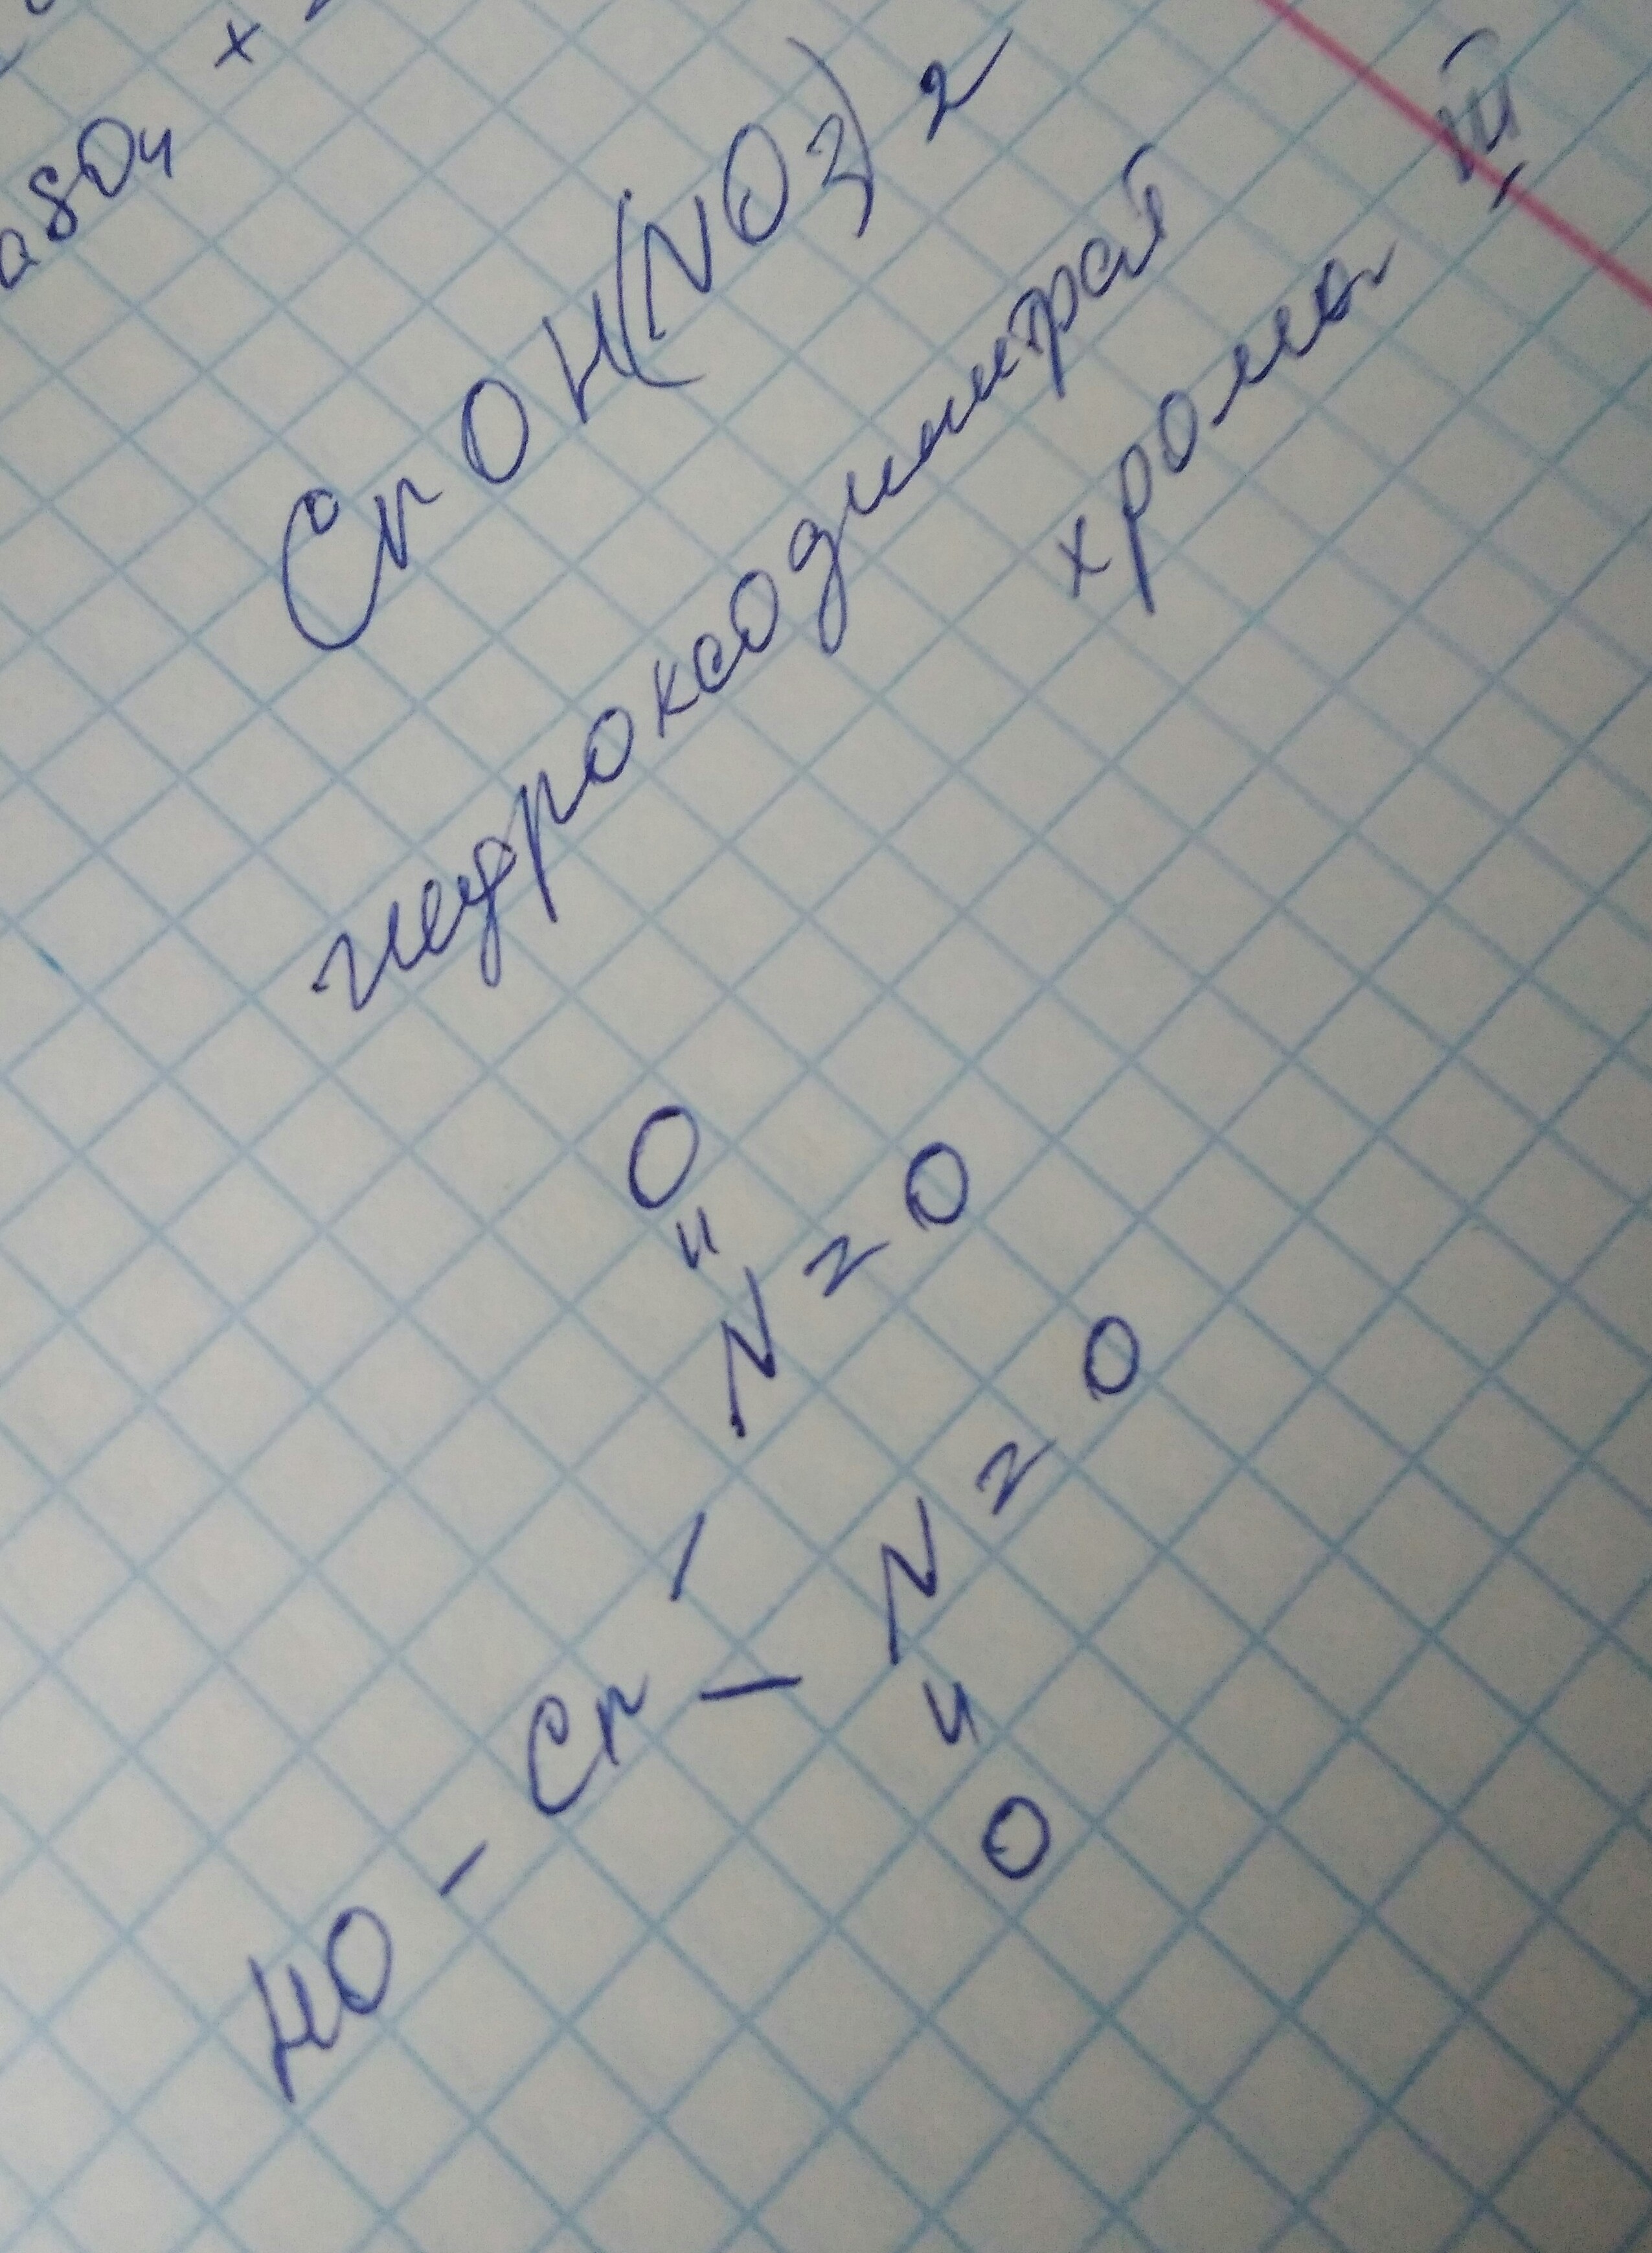 aSO4 +
CrOH(NO3)2
гидроксодинитрат
хрома III
O
"
N = O
/
HO - Cr - N = O
"
O